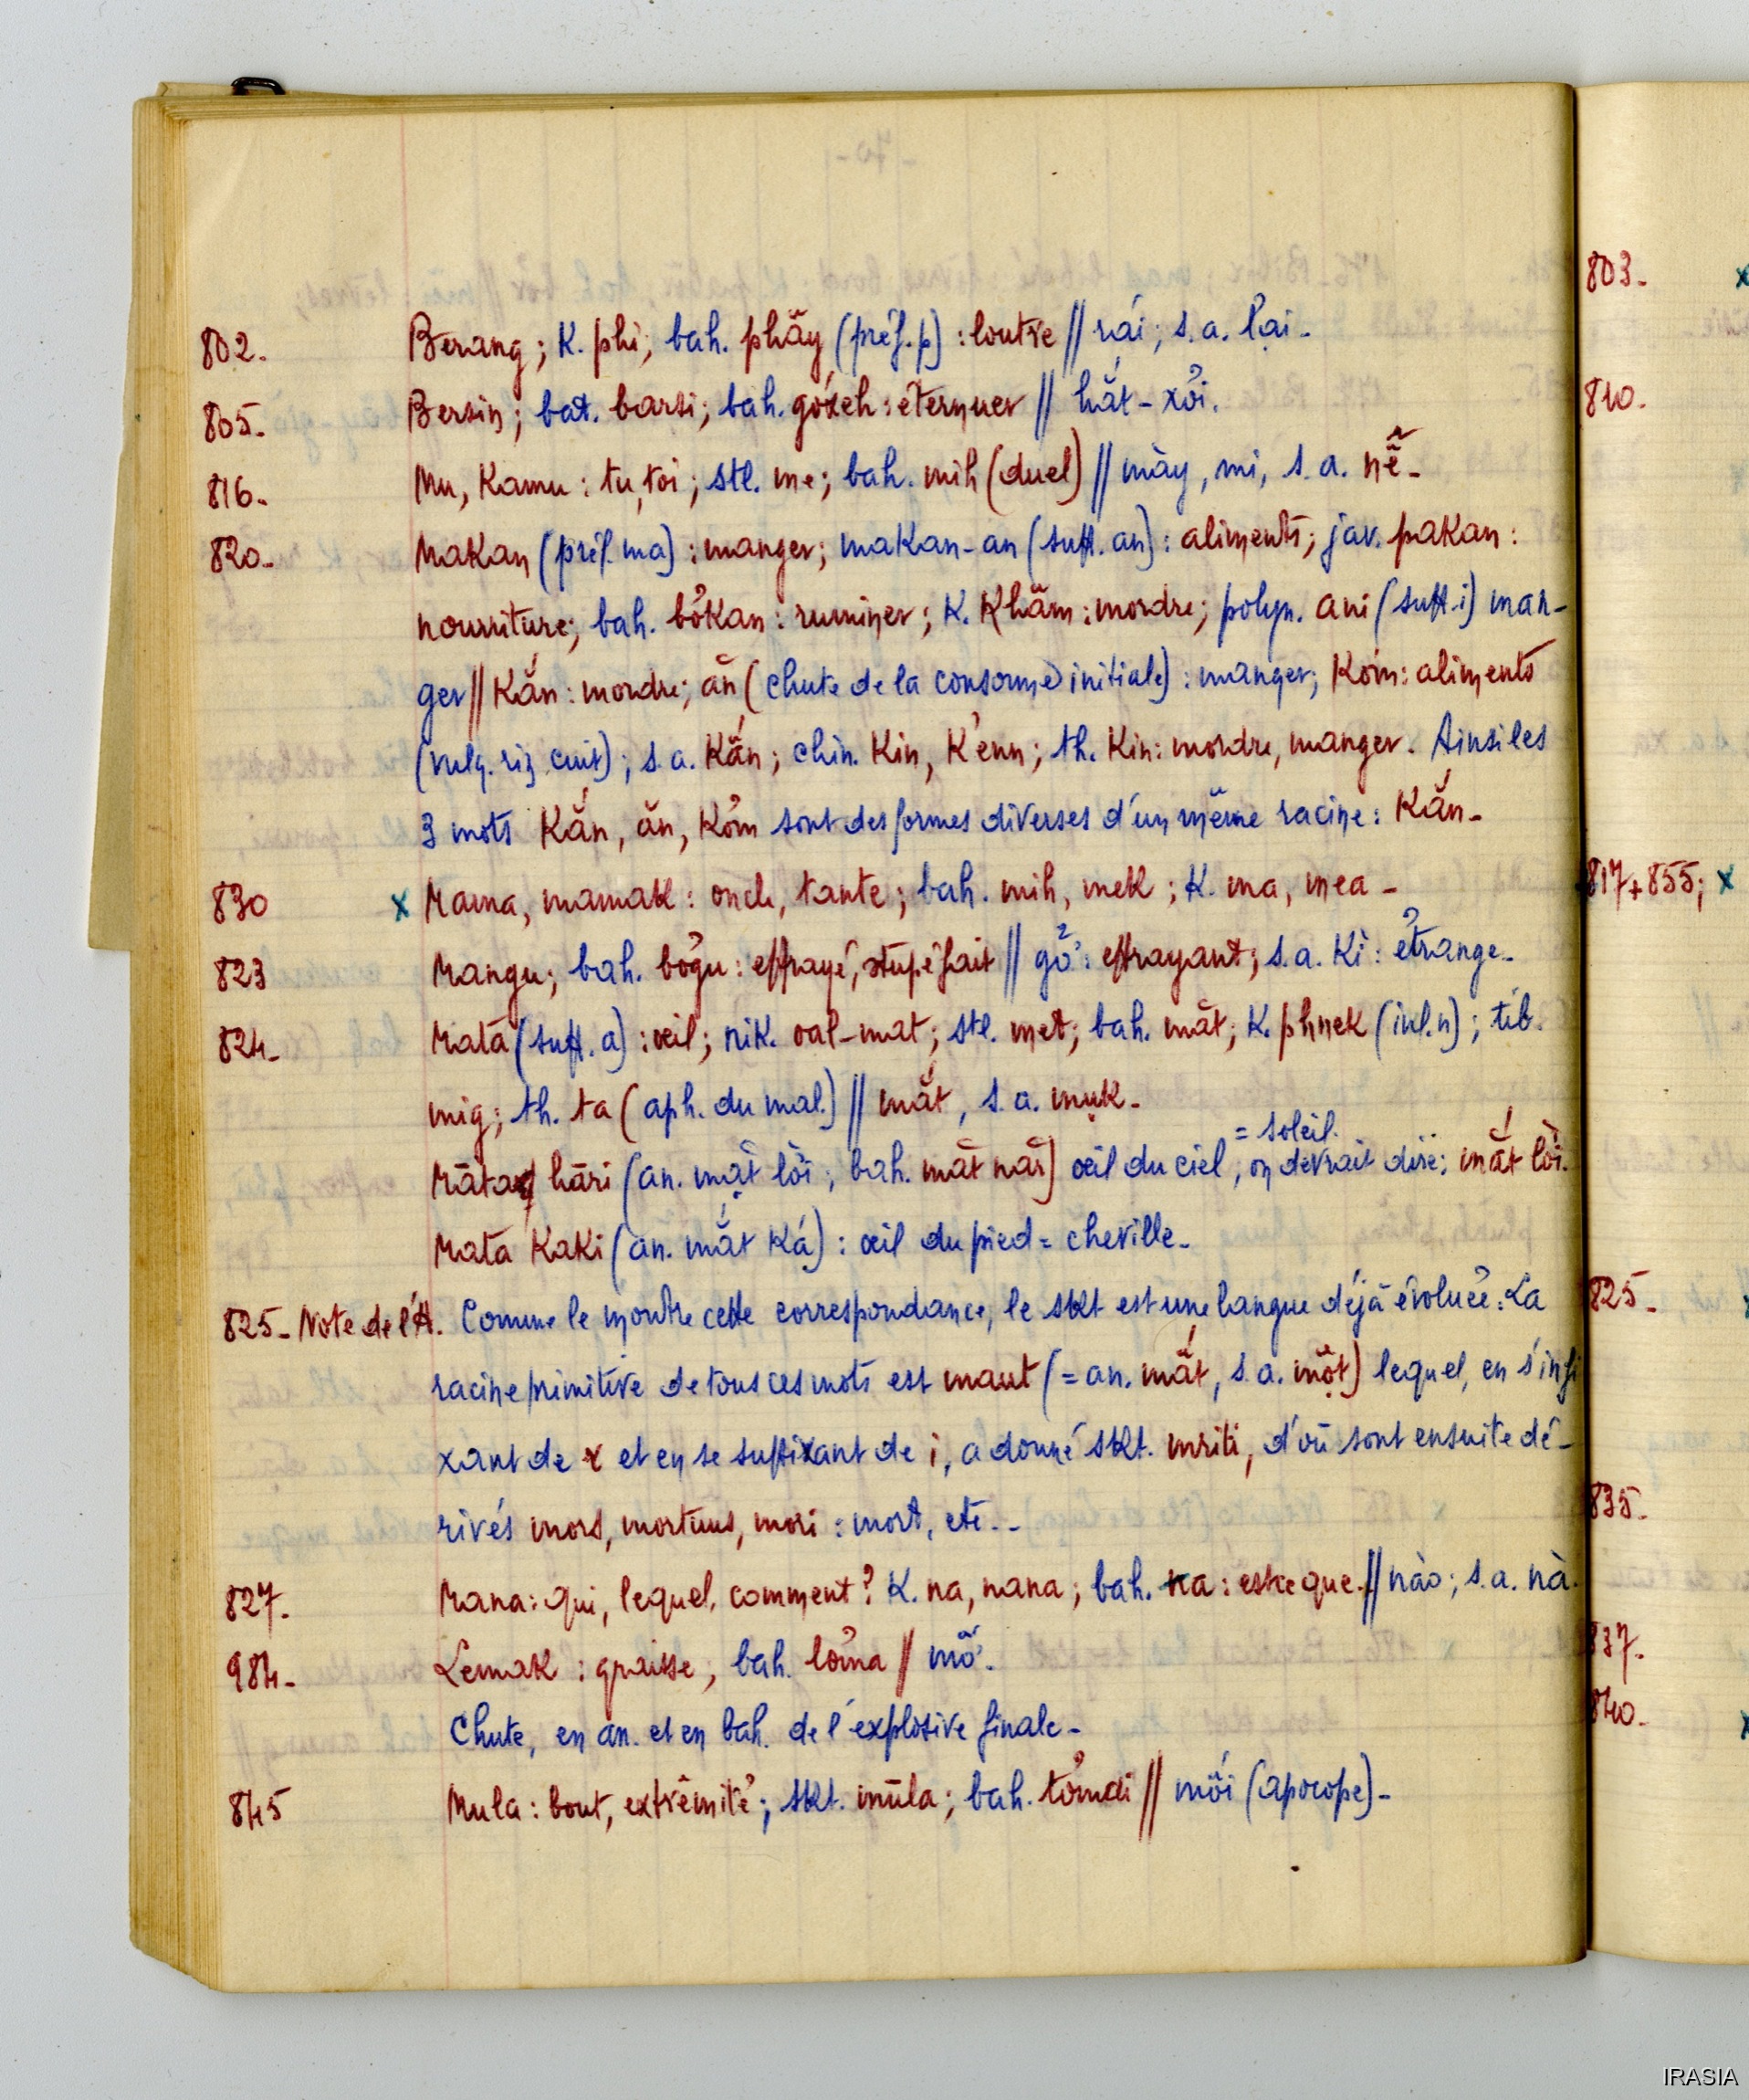 802. Berang; K. phi; bah. phăy (préf. p) : loutre // rái; s.a. lại.
805. Bersin; bat. barsi; bah. góxeh : éternuer // hắt-xổi.
816. Mu, Kamu : tu, toi; stl. me; bah. mih (duel) // mày, mi, s.a.
820. Makan (préf. ma) : manger; makan-an (suff. an) : aliments; jav. pakan :
nourriture; bah. bơkan : ruminer; K. Khăm : mordre; polyn. ani (suff. i) man-
ger // Kắn : mordre; ăn (chute de la consonne initiale) : manger; Kơm : aliments
(vulg. riz cuit); s.a. Kắn; chin. Kin, K'enn; th. Kin : mordre, manger. Ainsi les
3 mots Kắn, ăn, Kơm sont des formes diverses d'un même racine : Kắn-
830 x Mama, mamak : oncle, tante; bah. mih, mek; K. ma, mea -
823 Mangu; bah. bơgu : effrayé, stupéfait // gở : effrayant; s.a. Kì : étrange.
824- Mata (suff. a) : œil; nik. oal-mat; stl. met; bah. măt; K. phnek (inf. n); tib.
mig; th. ta (aph. du mal.) // mắt, s.a. mụk-
= soleil.
Mata hāri (an. mặt lời; bah. măt năr) œil du ciel; on devrait dire : mắt lời.
Mata Kaki (an. mắt Ká) : œil du pied = cheville-
825- Note de l'A. Comme le montre cette correspondance, le skt est une langue déjà évoluée : La
racine primitive de tous ces mots est maut (= an. mất, s.a. một) lequel, en s'infi
xant de r et en se suffixant de i, a donné skt. mriti, d'où sont ensuite dé-
rivés mors, mortuus, mori : mort, etc..
827. Mana : qui, lequel, comment? K. na, nana; bah. na : est-ce que // nào; s.a. nà.
984- Lemak : graisse; bah. lơma // mỡ.
Chute, en an. et en bah. de l'explosive finale-
845 Mula : bout, extrémité; skt. mūla; bah. tơmơi // mối (apocope)-
803- x
810.
817+855; x
825-
835-
837.
840-
IRASIA